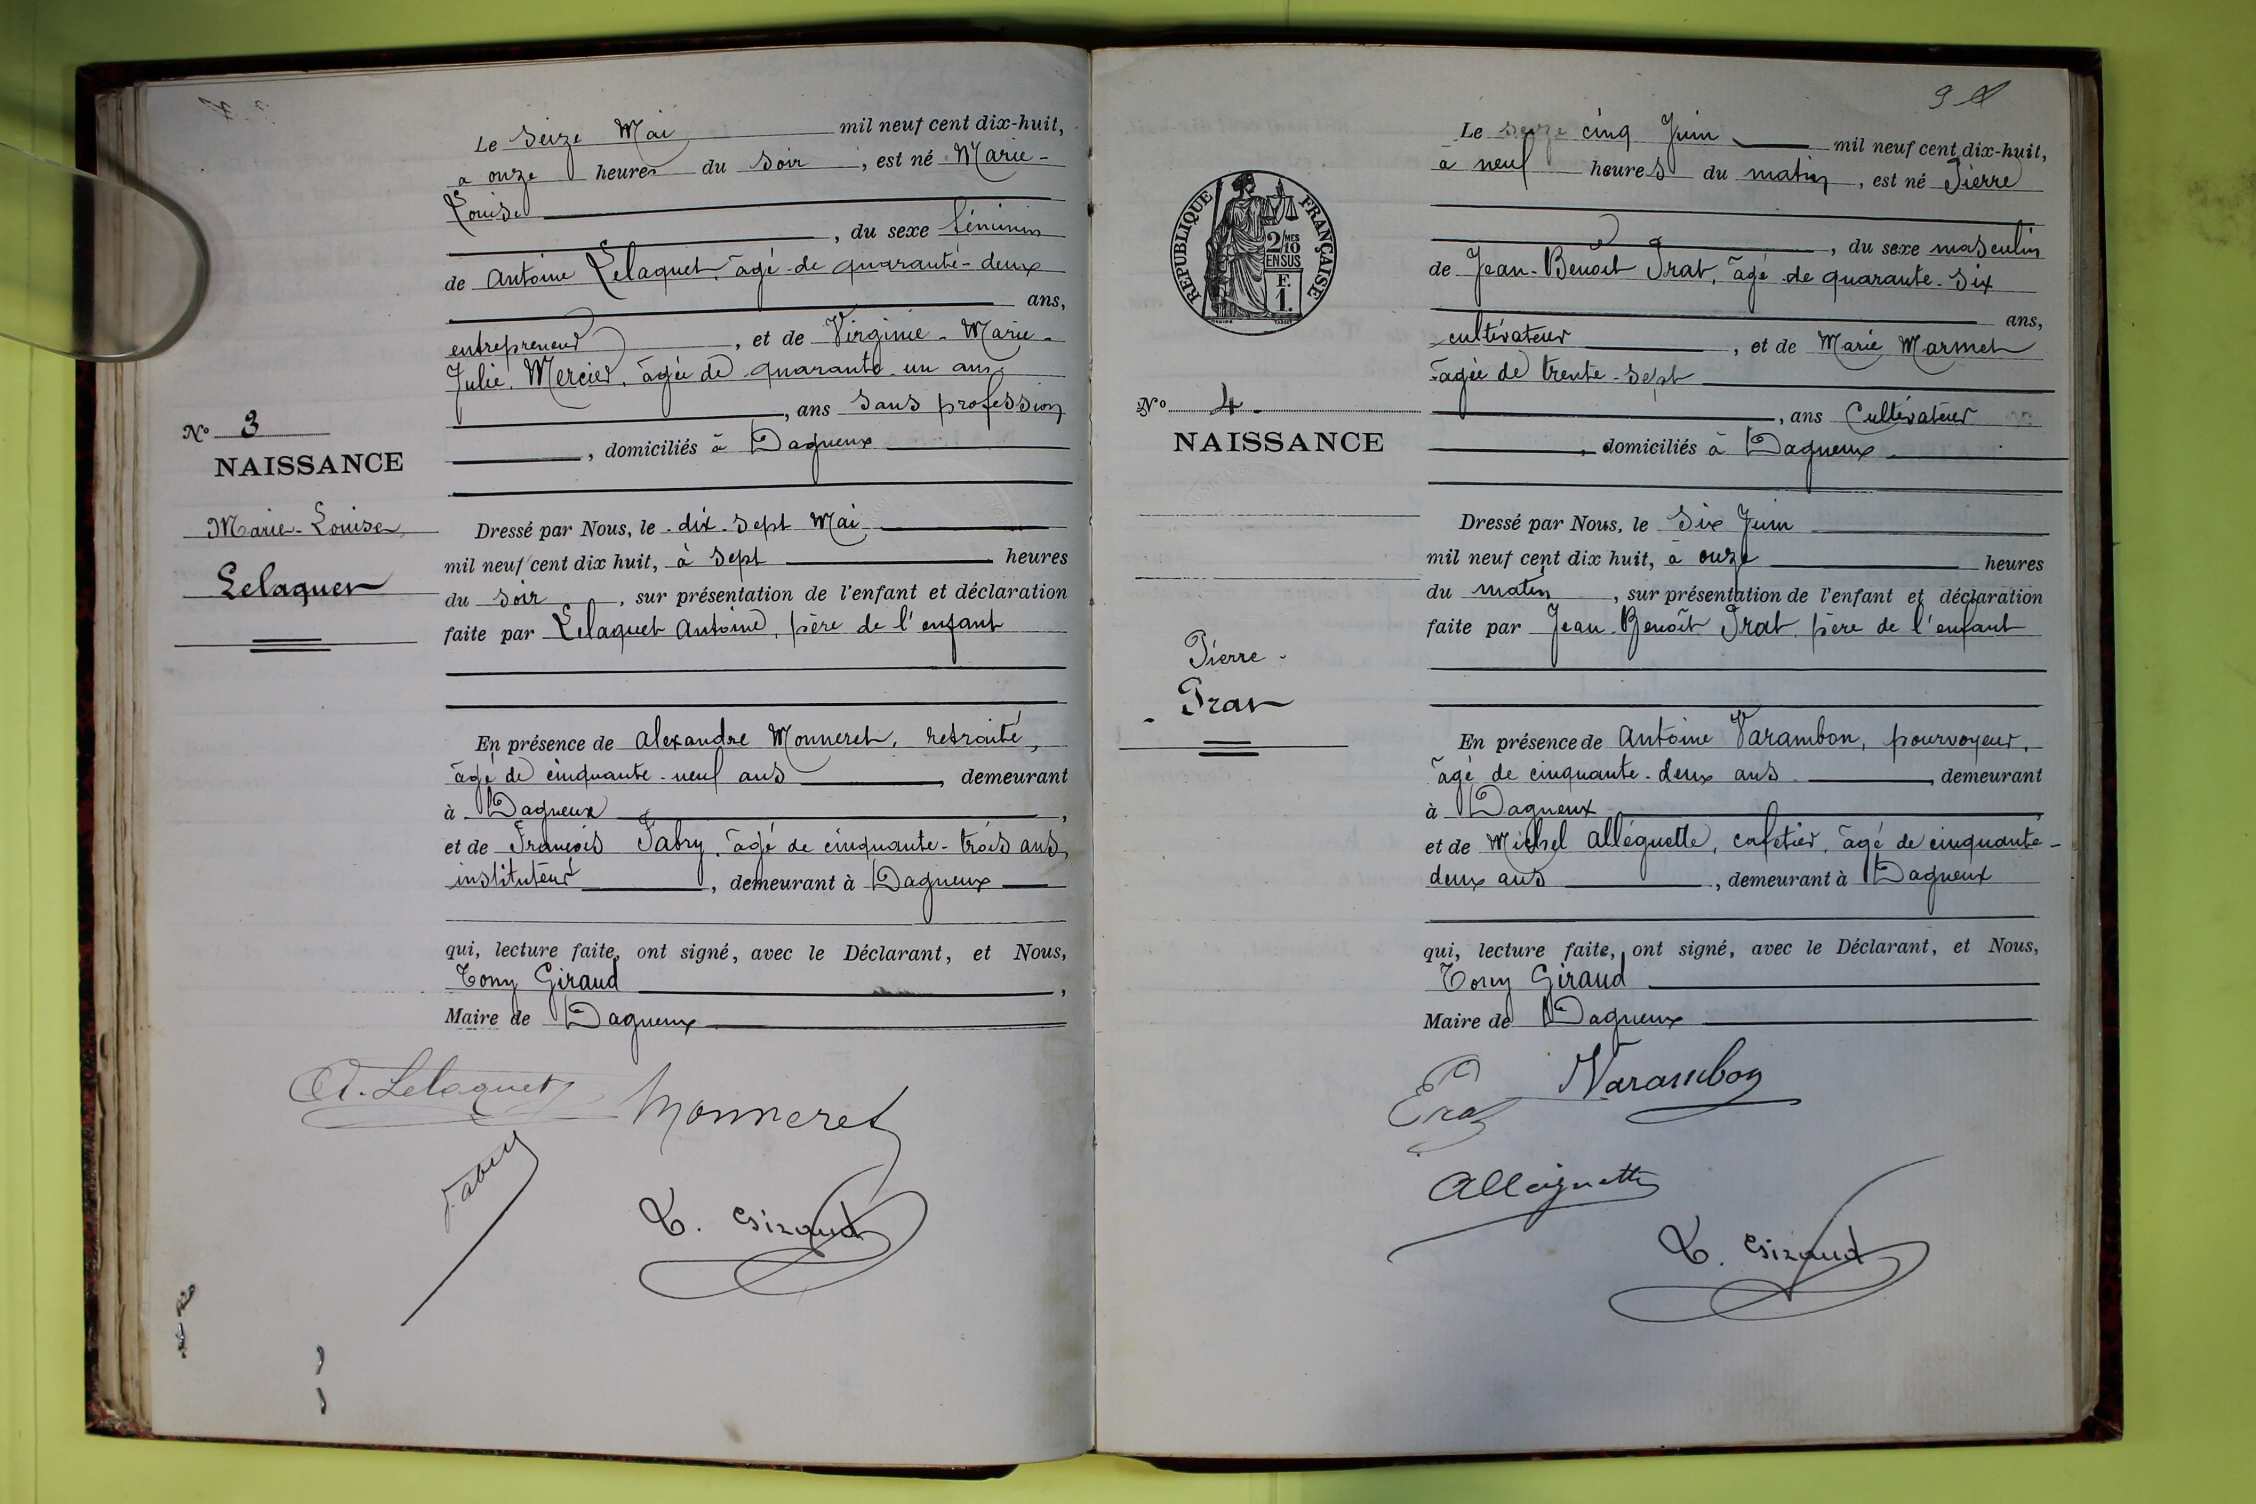 Le Seize Mai mil neuf cent dix-huit,
à onze heures du soir, est né Marie-
Louise
, du sexe féminin
de Antoine Lelaquet, âgé de quarante-deux
ans,
entrepreneur, et de Virginie-Marie-
Julie Mercier, âgée de quarante un ans
, ans sans profession
, domiciliés à Dagneux
No 3
NAISSANCE
Marie-Louise
Lelaquet
Dressé par Nous, le dix-sept Mai
mil neuf cent dix huit, à sept heures
du soir, sur présentation de l'enfant et déclaration
faite par Lelaquet Antoine, père de l'enfant
En présence de Alexandre Monneret, retraité,
âgé de cinquante-neuf ans, demeurant
à Dagneux,
et de François Fabry, âgé de cinquante-trois ans,
instituteur, demeurant à Dagneux
qui, lecture faite, ont signé, avec le Déclarant, et Nous,
Tony Giraud,
Maire de Dagneux
A. Lelaquet
Monneret
Fabry
T. Giraud
9
Le seize cinq Juin mil neuf cent dix-huit,
à neuf heures du matin, est né Pierre
, du sexe masculin
de Jean-Benoit Prat, âgé de quarante-six
ans,
cultivateur, et de Marie Marmet
âgée de trente-sept
, ans Cultivateur
, domiciliés à Dagneux
RÉPUBLIQUE FRANÇAISE
2/10 MES
EN SUS
F.
1.
No 4
NAISSANCE
Pierre
Prat
Dressé par Nous, le Six Juin
mil neuf cent dix huit, à onze heures
du matin, sur présentation de l'enfant et déclaration
faite par Jean-Benoît Prat, père de l'enfant
En présence de Antoine Varambon, pourvoyeur,
âgé de cinquante-deux ans, demeurant
à Dagneux,
et de Michel Alléguette, cafetier, âgé de cinquante-
deux ans, demeurant à Dagneux
qui, lecture faite, ont signé, avec le Déclarant, et Nous,
Tony Giraud
Maire de Dagneux
Prat
Varambon
Alleiguette
T. Giraud